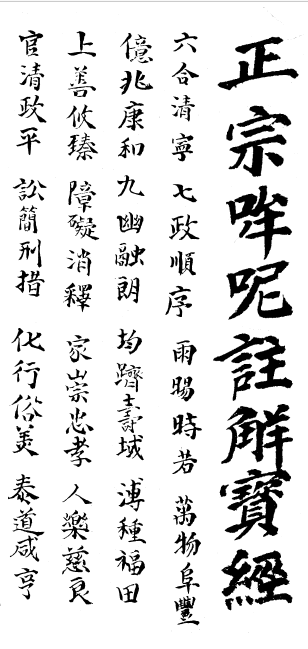 正宗哞呢註解寶經
六合清寧 七政順序 雨暘時若 萬物阜豐
億兆康和 九幽融朗 均躋壽域 溥種福田
上善攸臻 障礙消釋 家崇忠孝 人樂慈良
官清政平 訟簡刑措 化行俗美 泰道咸亨